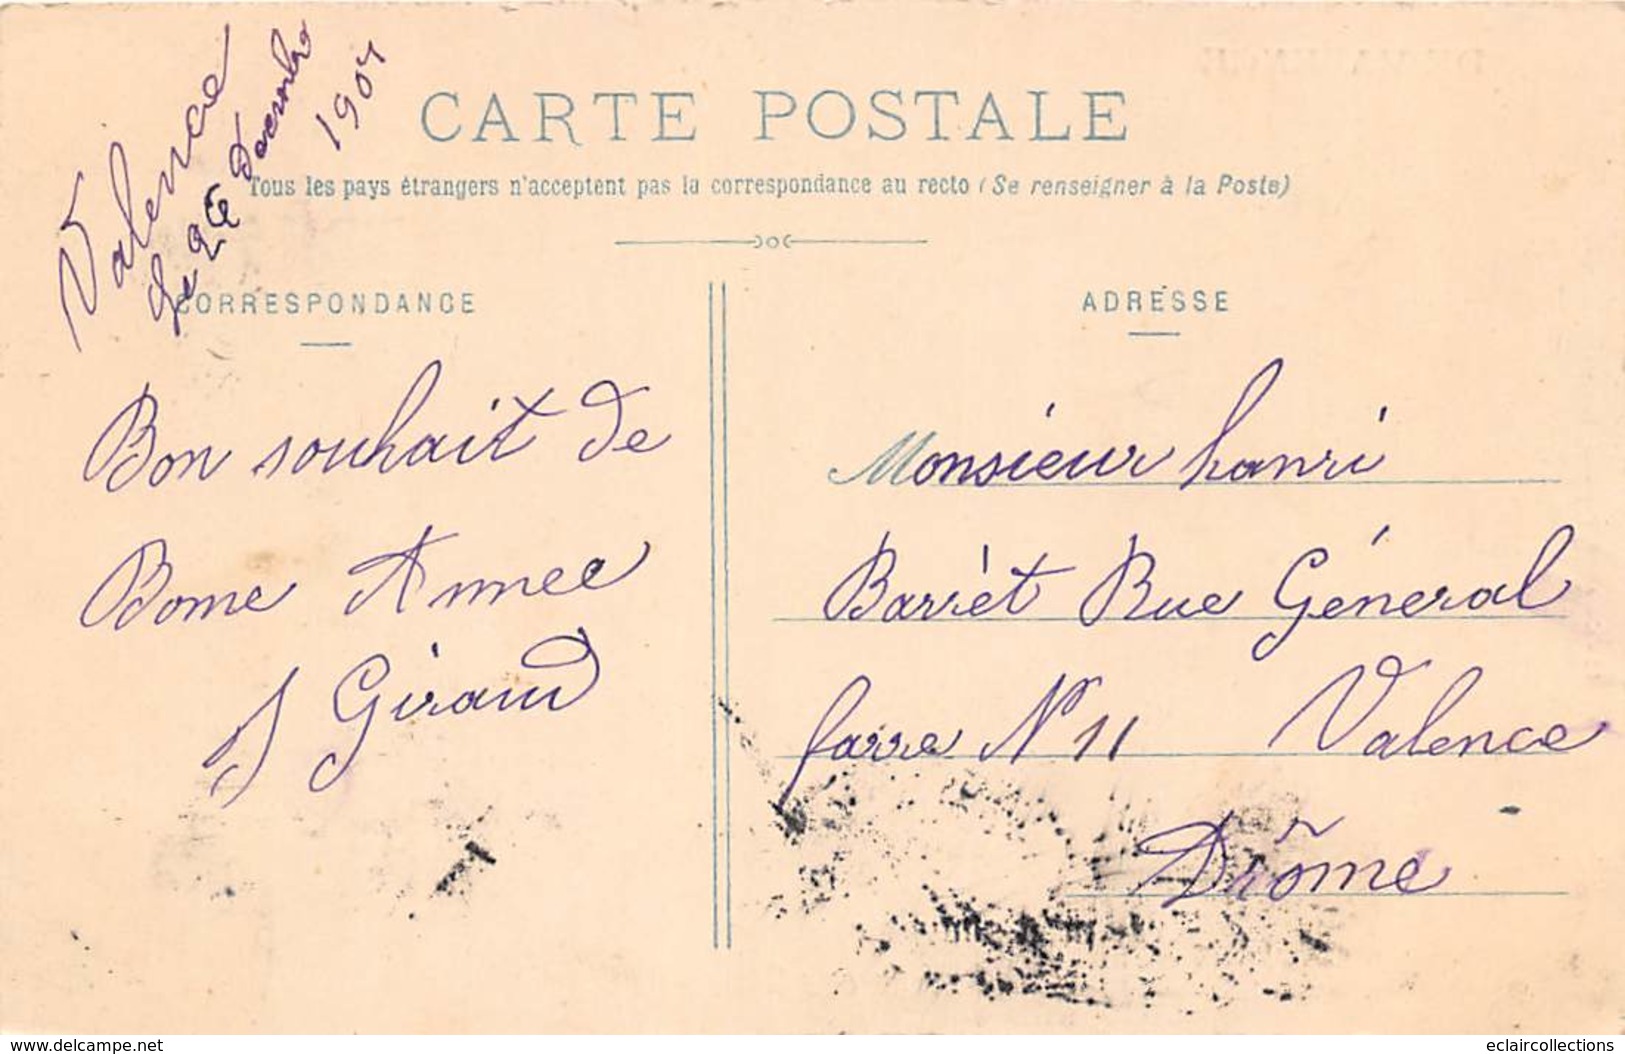 Valence
Le Decembre
1907
CARTE POSTALE
Tous les pays étrangers n'acceptent pas la correspondance au recto (Se renseigner à la Poste)
CORRESPONDANCE
Bon souhait de
Bonne Annee
J Giraud
ADRESSE
Monsieur hanri
Barrèt Rue Général
farre N° 11 Valence
Drôme
www.delcampe.net
eclaircollections